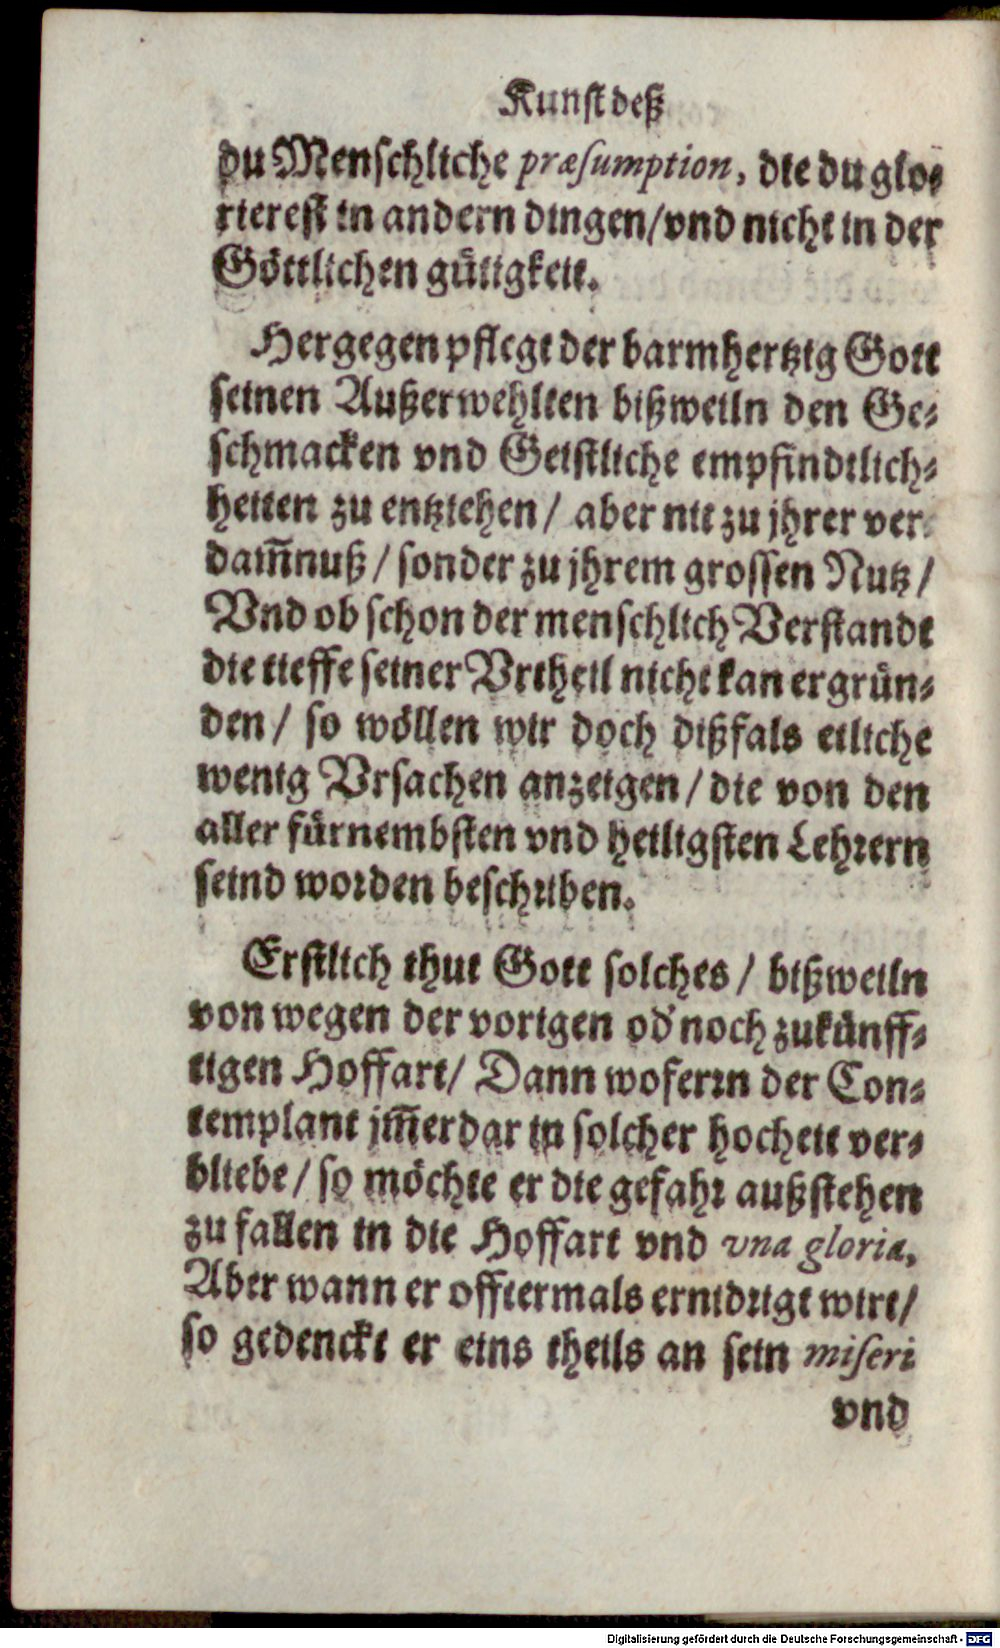 Kunst deß
du Menschliche præsumption, die du glo-
rierest in andern dingen/vnd nicht in der
Göttlichen gütigkeit.
Hergegen pflegt der barmhertzig Gott
seinen Außerwehlten bißweiln den Ge-
schmacken vnd Geistliche empfindtlich-
heiten zu entziehen/ aber nit zu jhrer ver-
dam̄nuß/ sonder zu jhrem grossen Nutz/
Vnd ob schon der menschlich Verstandt
die tieffe seiner Vrtheil nicht kan ergrün-
den/ so wöllen wir doch dißfals etliche
wenig Vrsachen anzeigen/ die von den
aller fürnembsten vnd heiligsten Lehrern
seind worden beschriben.
Erstlich thut Gott solches/ bißweiln
von wegen der vorigen od' noch zukünff-
tigen Hoffart/ Dann woferrn der Con-
templant jm̄erdar in solcher hocheit ver-
bliebe/ so möchte er die gefahr außstehen
zu fallen in die Hoffart vnd vna gloria,
Aber wann er offtermals ernidrigt wirt/
so gedenckt er eins theils an sein miseri
vnd
Digitalisierung gefördert durch die Deutsche Forschungsgemeinschaft - DFG